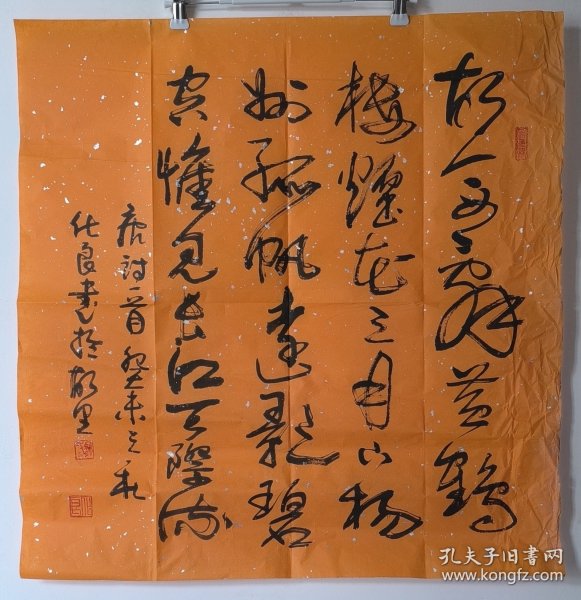 故人西辞黄鹤
楼烟花三月下扬
州孤帆远影碧
空惟见长江天际流
唐诗一首癸未之秋
化良书于故里
孔夫子旧书网
www.kongfz.com